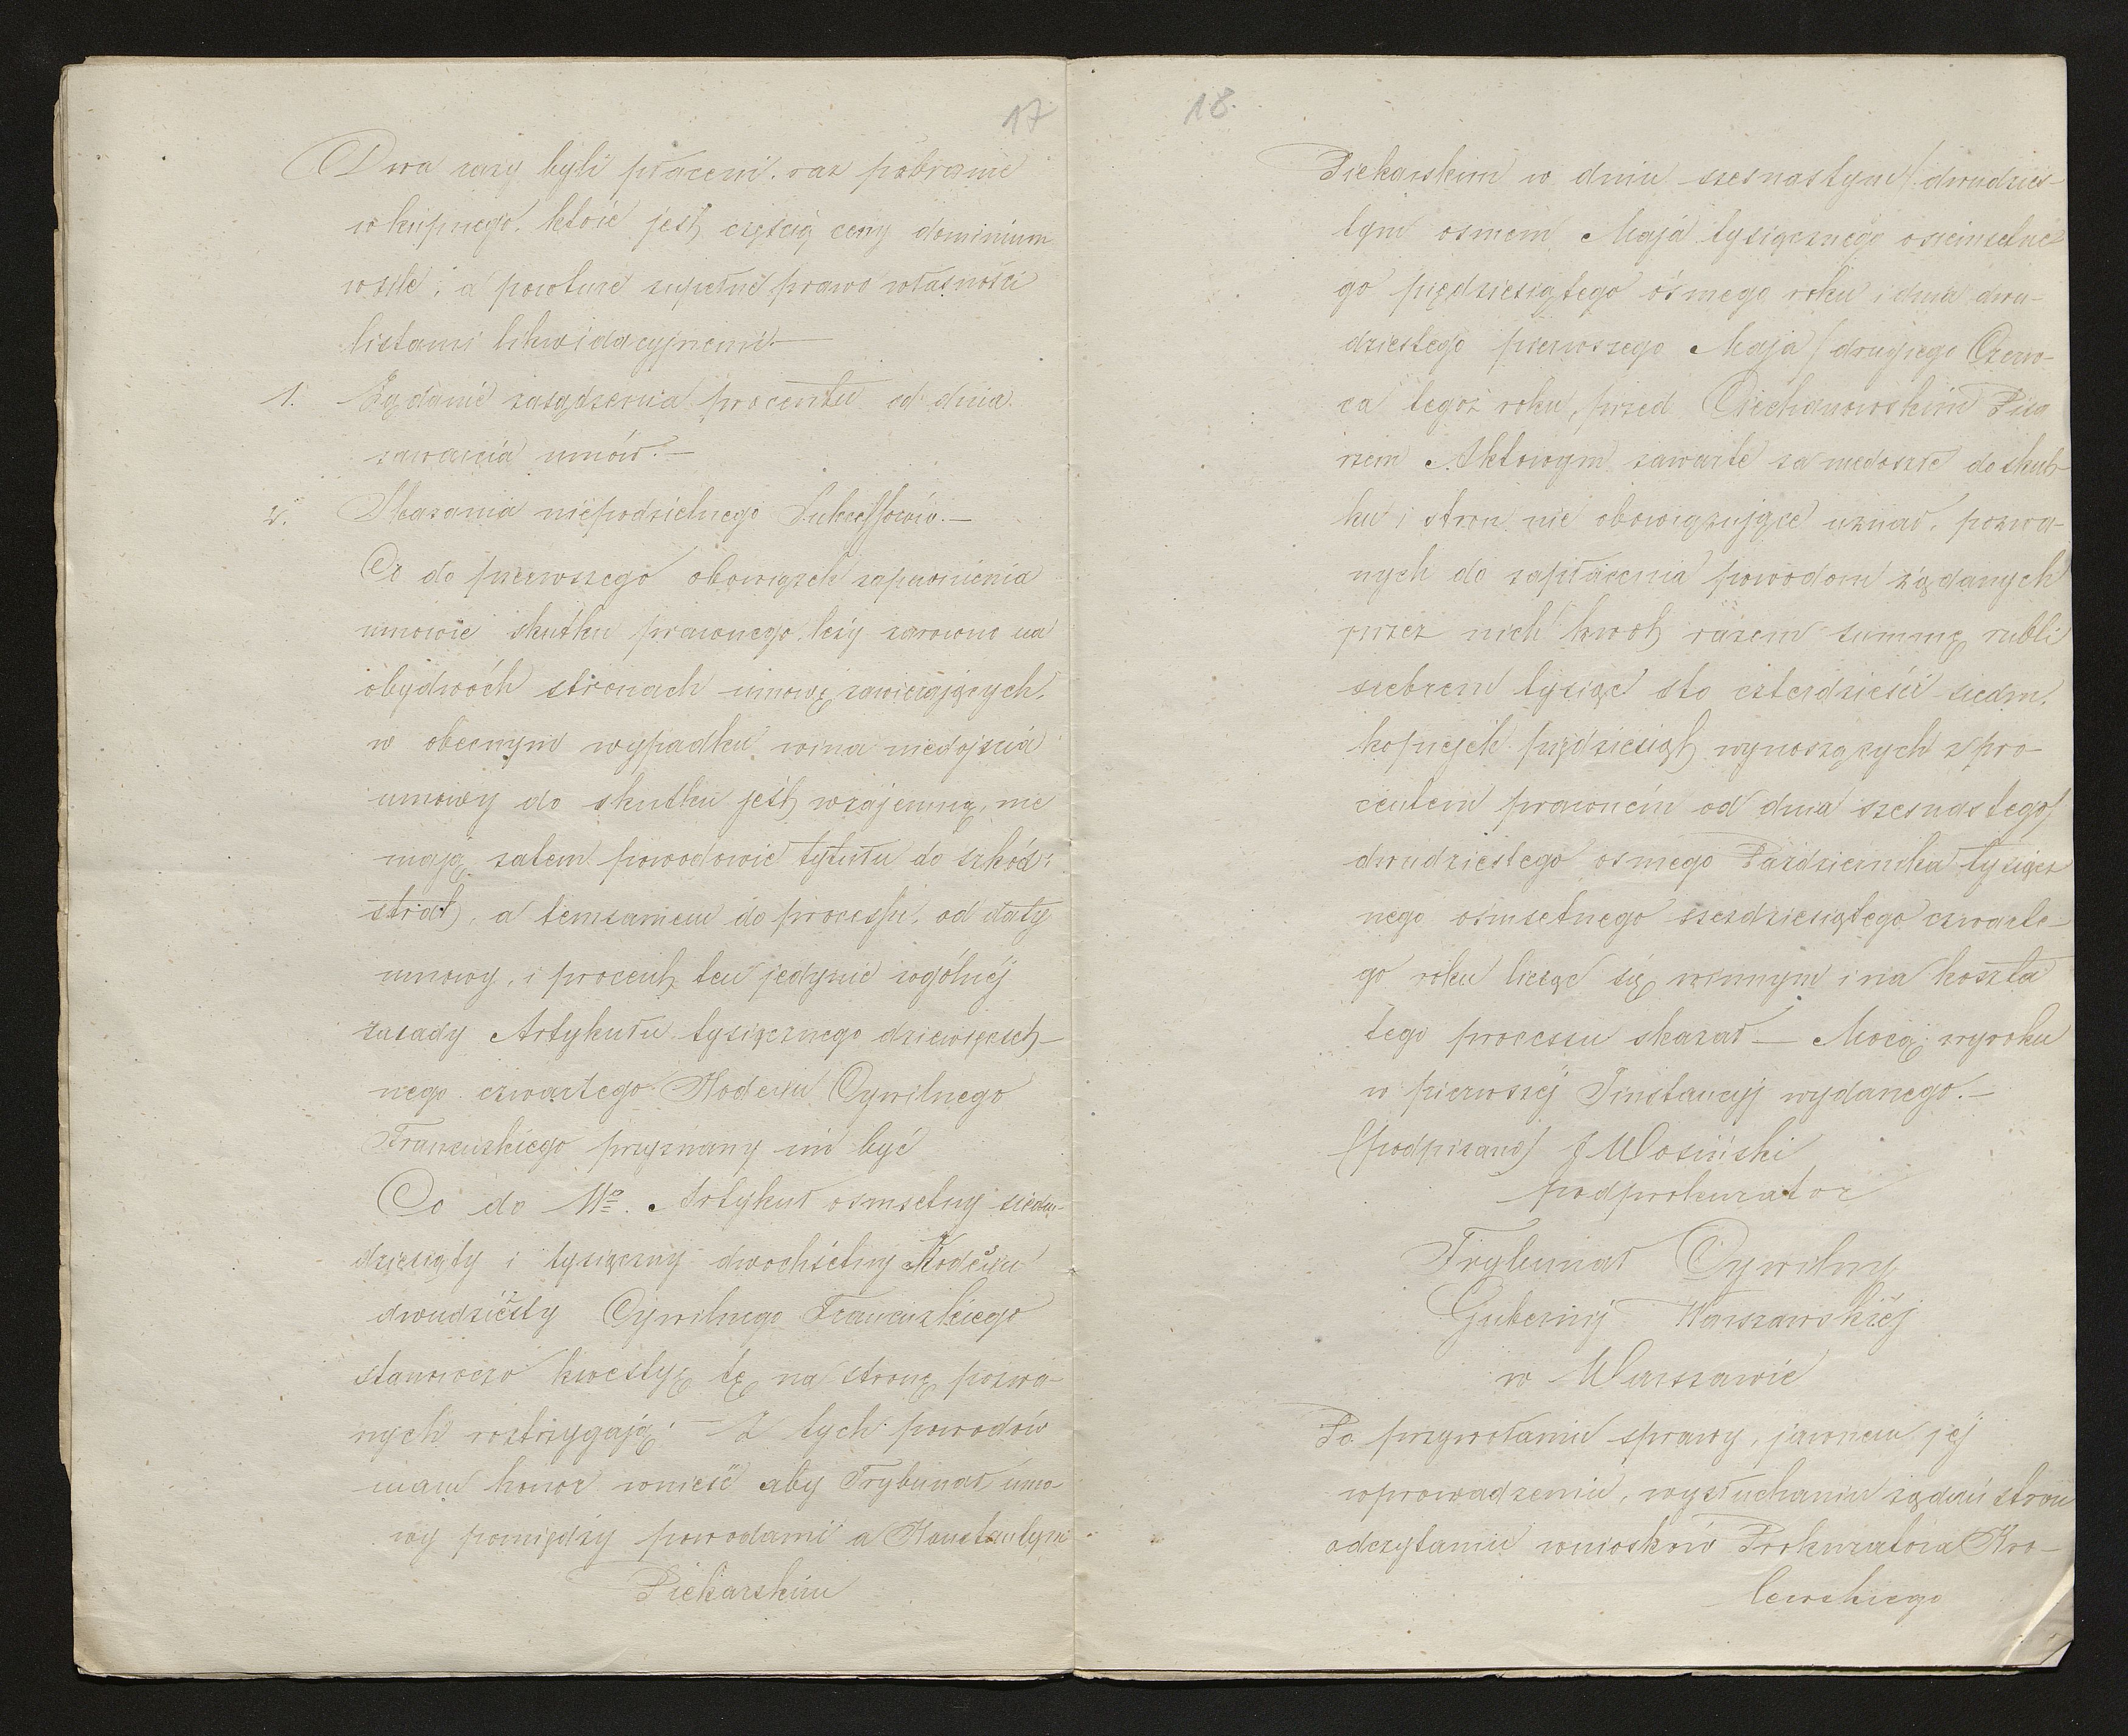 17
Dwa razy byli płaceni. raz pobranie
wkupnego, które jest częścią ceny dominium
utile, a powtóre zupełne prawo własności
listami likwidacyjnemi.—
1. Żądanie zasądzenia procentu od dnia
zawarcia umów.—
2. Skazania niepodzielnego Sukcessorów.—
Co do pierwszego obowiązek zapewnienia
umowie skutku prawnego, leży zarowno na
obydwóch stronach umowę zawierających,
w obecnym wypadku wina niedojścia
umowy do skutku jest wzajemną, nie
mają zatem powodowie tytułu do szkód i
strat, a temsamem do processu, od daty
umowy, i procent ten jedynie wogólnéj
zasady Artykułu tysiącznego dziewięcset-
nego czwartego Kodexu Cywilnego
Francuzkiego przyznany im być
Co do IIgo. Artykuł osmsetny siedm-
dziesiąty i tysiączny dwochsetny Kodexu
dwudziesty Cywilnego Francuzkiego
stanowczo kwestyę tę na stronę pozwa-
nych roztrzygają.— Z tych powodów
mam honor wnieść aby Trybunał umo-
wy pomiędzy powodami a Konstantym
Piekarskim
18.
Piekarskim w dniu szesnastym/dwudzies-
tym osmem Maja tysiącznego osiemsetne
go pięćdziesiątego ósmego roku i dnia dwu-
dziestego pierwszego Maja/drugiego Czerw-
ca tegoż roku, przed Ciechanowskim Pisa
rzem Aktowym zawarte za niedoszłe do skut-
ku i stron nie obowiązujące uznał, pozwa-
nych do zapłacenia powodom żądanych
przez nich kwot razem summę rubli
srebrem tysiąc sto czterdzieści siedm,
kopiejek pięćdziesiąt wynoszących z pro-
centem prawném od dnia szesnastego/
dwudziestego osmego Października tysiącz
nego osmsetnego sześdziesiątego czwarte-
go roku licząc się winnym i na koszta
tego processu skazał — Mocą wyroku
w pierwszéj Instancyj wydanego.—
(podpisano) J Wosiński
podprokurator
Trybunał Cywilny
Gubernij Warszawskiéj
w Warszawie
Po przywołaniu sprawy, jawnem jéj
wprowadzeniu, wysłuchaniu żądań stron
odczytaniu wniosków Prokuratora Kro-
lewskiego